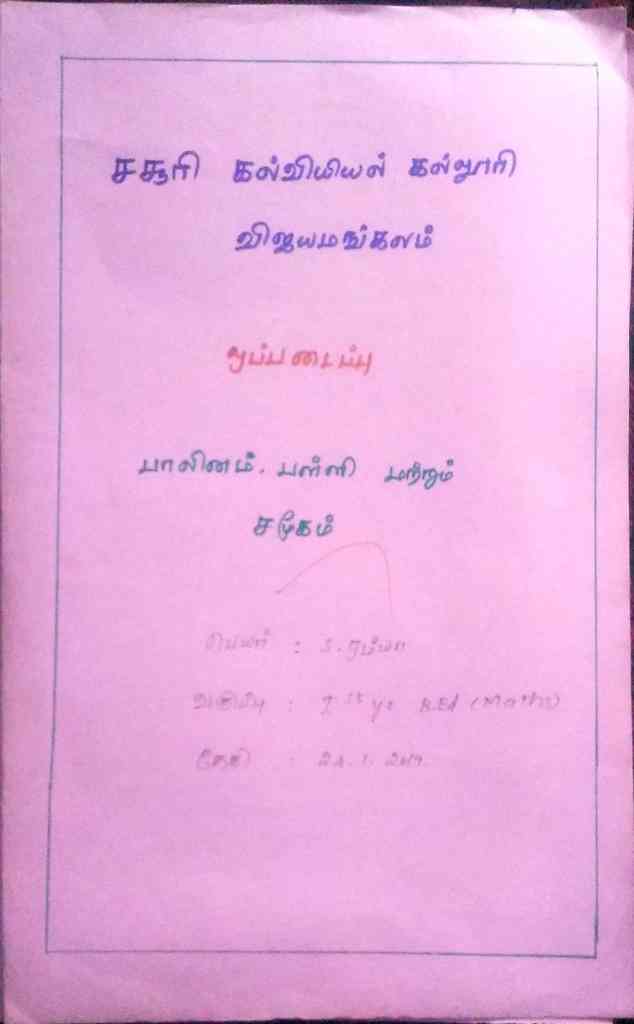 சசூரி கல்வியியல் கல்லூரி
விஜயமங்கலம்
ஒப்படைப்பு
பாலினம், பள்ளி மற்றும்
சமூகம்
பெயர் : S. ரம்யா
வகுப்பு : I st yr B.Ed (Maths)
தேதி :